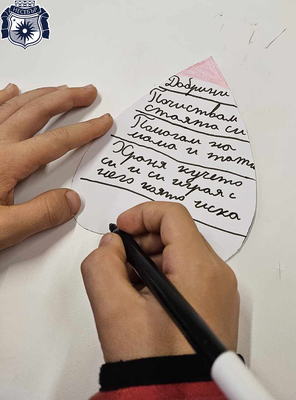 НЕСЕБЪР
Добрини
Почиствам
стаята си
Помагам на
мама и тати
Храня кучето
си и си играя с
него която иска